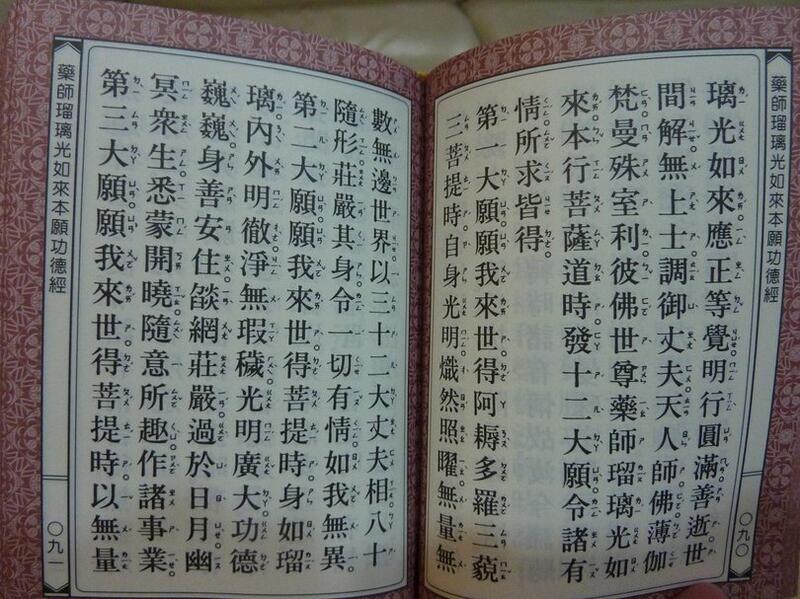 藥師瑠璃光如來本願功德經
〇九〇
璃光如來應正等覺。明行圓滿。善逝。世
間解。無上士。調御丈夫。天人師。佛。薄伽
梵。曼殊室利。彼佛世尊藥師瑠璃光如
來。本行菩薩道時。發十二大願。令諸有
情。所求皆得。
第一大願。願我來世。得阿耨多羅三藐
三菩提時。自身光明熾然。照曜無量無
數無邊世界。以三十二大丈夫相。八十
隨形莊嚴其身。令一切有情。如我無異。
第二大願。願我來世得菩提時。身如瑠
璃。內外明徹。淨無瑕穢。光明廣大。功德
巍巍。身善安住。燄網莊嚴。過於日月。幽
冥衆生。悉蒙開曉。隨意所趣。作諸事業。
第三大願。願我來世得菩提時。以無量
藥師瑠璃光如來本願功德經
〇九一